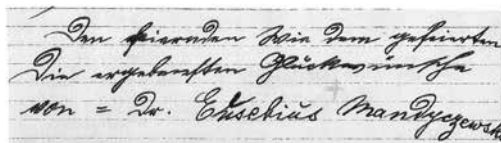 Den feiernden Wie dem gefeierten
Die ergebensten Glückwünsche
von = Dr. Eusebius Mandyczewski